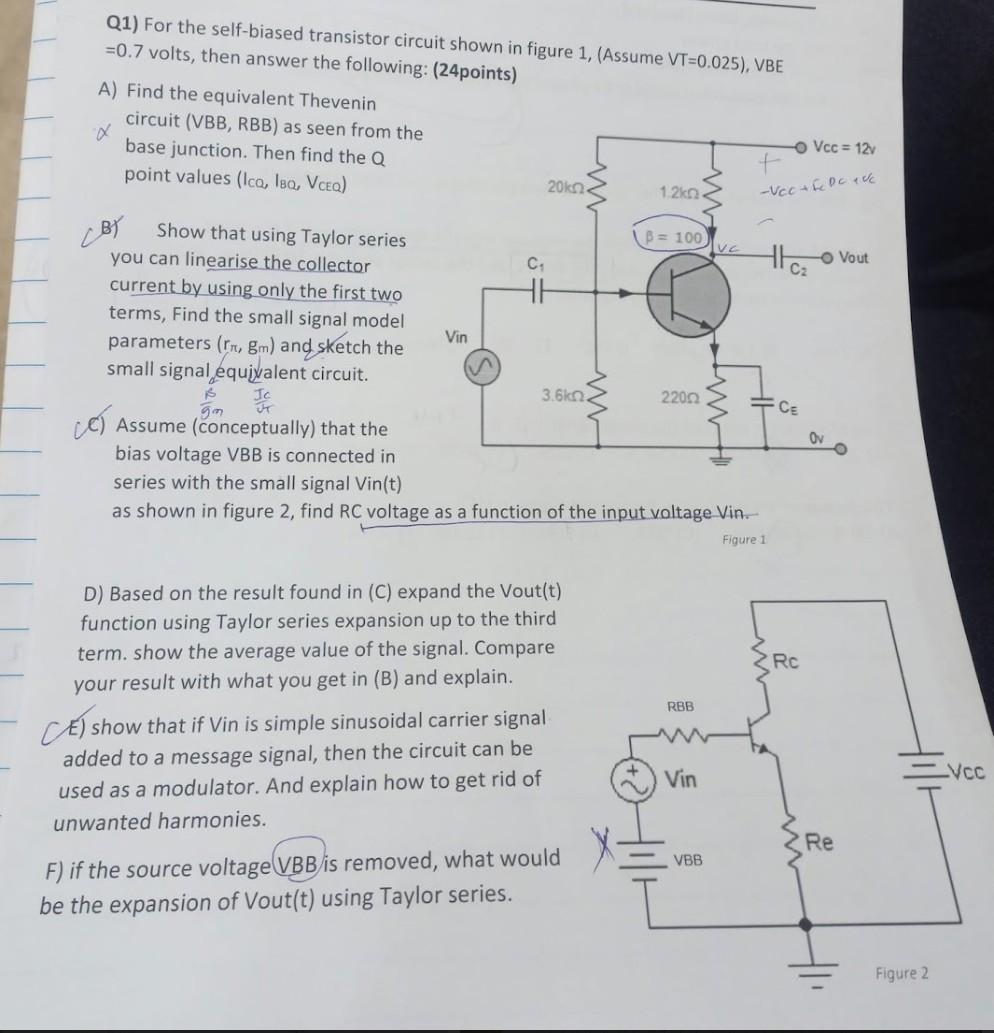 Q1) For the self-biased transistor circuit shown in figure 1, (Assume VT=0.025), VBE
=0.7 volts, then answer the following: (24points)
A) Find the equivalent Thevenin
circuit (VBB, RBB) as seen from the
base junction. Then find the Q
point values (ICQ, IBQ, VCEQ)
B) Show that using Taylor series
you can linearise the collector
current by using only the first two
terms, Find the small signal model
parameters (rπ, gm) and sketch the
small signal equivalent circuit.
β
gm
Ic
VT
C) Assume (conceptually) that the
bias voltage VBB is connected in
series with the small signal Vin(t)
as shown in figure 2, find RC voltage as a function of the input voltage Vin.
Vcc = 12v
20kΩ
1.2kΩ
β = 100
Vc
C2
Vout
C1
Vin
3.6kΩ
220Ω
CE
0v
Figure 1
D) Based on the result found in (C) expand the Vout(t)
function using Taylor series expansion up to the third
term. show the average value of the signal. Compare
your result with what you get in (B) and explain.
E) show that if Vin is simple sinusoidal carrier signal
added to a message signal, then the circuit can be
used as a modulator. And explain how to get rid of
unwanted harmonies.
F) if the source voltage VBB is removed, what would
be the expansion of Vout(t) using Taylor series.
Rc
RBB
Vin
Vcc
Re
VBB
Figure 2